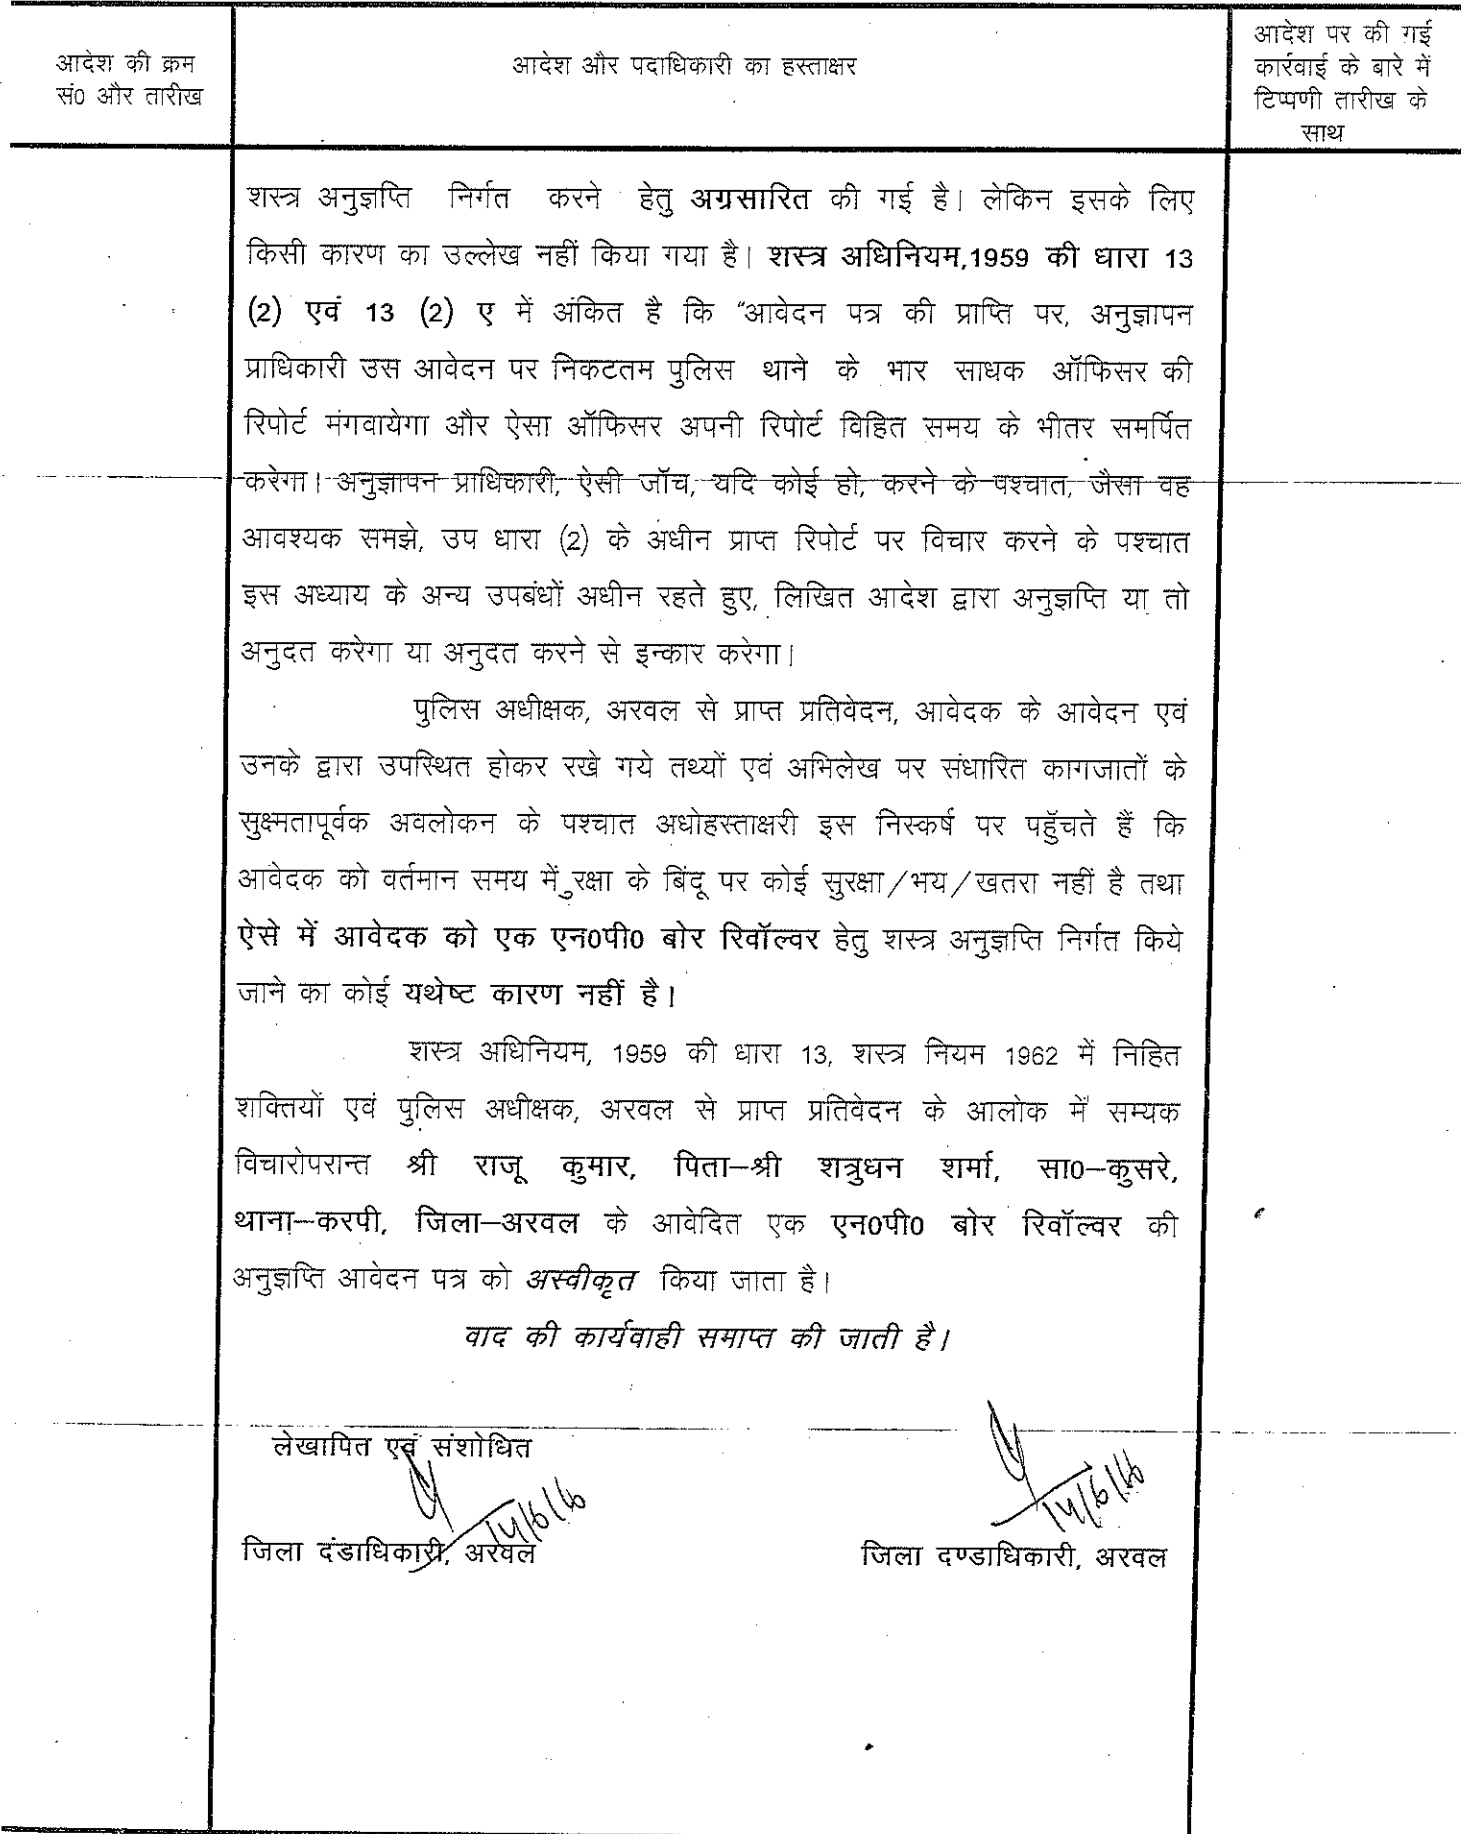 आदेश की क्रम
सं0 और तारीख
आदेश और पदाधिकारी का हस्ताक्षर
आदेश पर की गई
कार्रवाई के बारे में
टिप्पणी तारीख के
साथ
शस्त्र अनुज्ञप्ति निर्गत करने हेतु अग्रसारित की गई है। लेकिन इसके लिए
किसी कारण का उल्लेख नहीं किया गया है। शस्त्र अधिनियम,1959 की धारा 13
(2) एवं 13 (2) ए में अंकित है कि "आवेदन पत्र की प्राप्ति पर, अनुज्ञापन
प्राधिकारी उस आवेदन पर निकटतम पुलिस थाने के भार साधक ऑफिसर की
रिपोर्ट मंगवायेगा और ऐसा ऑफिसर अपनी रिपोर्ट विहित समय के भीतर समर्पित
करेगा। अनुज्ञापन प्राधिकारी, ऐसी जॉच, यदि कोई हो, करने के पश्चात, जैसा वह
आवश्यक समझे, उप धारा (2) के अधीन प्राप्त रिपोर्ट पर विचार करने के पश्चात
इस अध्याय के अन्य उपबंधों अधीन रहते हुए, लिखित आदेश द्वारा अनुज्ञप्ति या तो
अनुदत करेगा या अनुदत करने से इन्कार करेगा।
पुलिस अधीक्षक, अरवल से प्राप्त प्रतिवेदन, आवेदक के आवेदन एवं
उनके द्वारा उपस्थित होकर रखे गये तथ्यों एवं अभिलेख पर संधारित कागजातों के
सुक्ष्मतापूर्वक अवलोकन के पश्चात अधोहस्ताक्षरी इस निस्कर्ष पर पहुँचते हैं कि
आवेदक को वर्तमान समय में ुरक्षा के बिंदू पर कोई सुरक्षा/भय/खतरा नहीं है तथा
ऐसे में आवेदक को एक एन0पी0 बोर रिवॉल्वर हेतु शस्त्र अनुज्ञप्ति निर्गत किये
जाने का कोई यथेष्ट कारण नहीं है।
शस्त्र अधिनियम, 1959 की धारा 13, शस्त्र नियम 1962 में निहित
शक्तियों एवं पुलिस अधीक्षक, अरवल से प्राप्त प्रतिवेदन के आलोक में सम्यक
विचारोपरान्त श्री राजू कुमार, पिता–श्री शत्रुधन शर्मा, सा0–कुसरे,
थाना–करपी, जिला–अरवल के आवेदित एक एन0पी0 बोर रिवॉल्वर की
अनुज्ञप्ति आवेदन पत्र को अस्वीकृत किया जाता है।
वाद की कार्यवाही समाप्त की जाती है।
लेखापित एवं संशोधित
14/6/16
14/6/16
जिला दंडाधिकारी, अरवल
जिला दण्डाधिकारी, अरवल